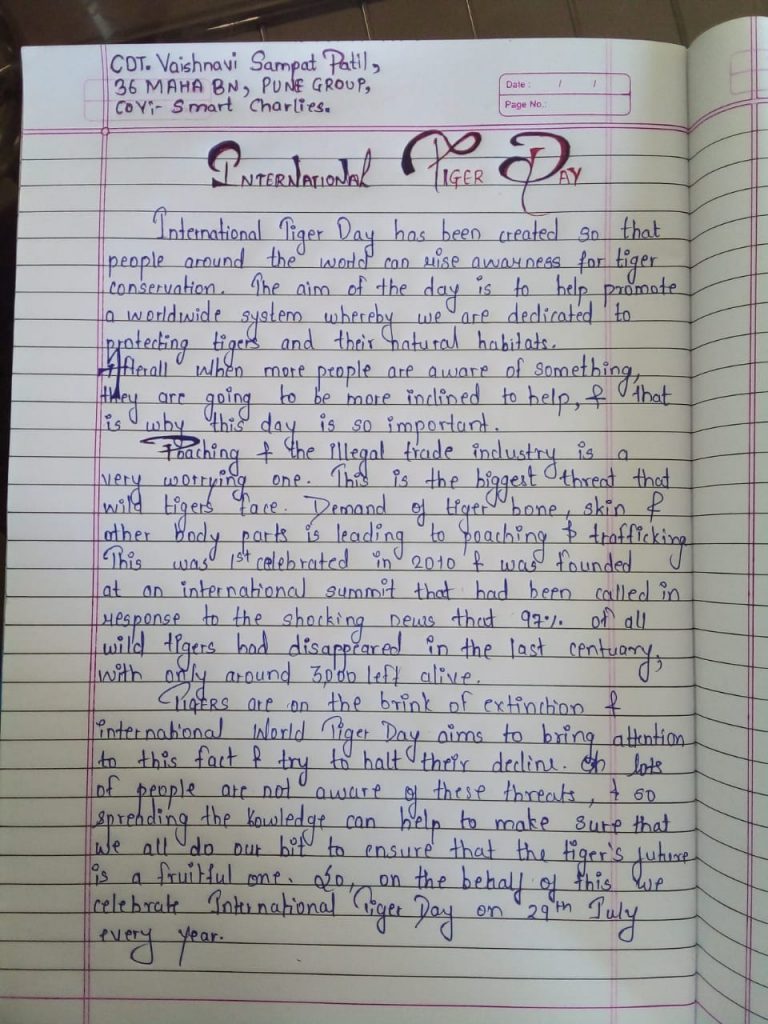 CDT. Vaishnavi Sampat Patil,
36 MAHA BN, PUNE GROUP,
COY:- Smart Charlies.
Date : / /
Page No.:
INTERNATIONAL TIGER DAY
International Tiger Day has been created so that
people around the world can rise awarness for tiger
conservation. The aim of the day is to help promote
a worldwide system whereby we are dedicated to
protecting tigers and their natural habitats.
Afterall when more people are aware of something,
they are going to be more inclined to help, & that
is why this day is so important.
Poaching & the illegal trade industry is a
very worrying one. This is the biggest threat that
wild tigers face. Demand of tiger bone, skin &
other body parts is leading to poaching & trafficking
This was 1st celebrated in 2010 & was founded
at an international summit that had been called in
response to the shocking news that 97% of all
wild tigers had disappeared in the last centuary,
with only around 3,000 left alive.
TIGERS are on the brink of extinction &
international World Tiger Day aims to bring attention
to this fact & try to halt their decline. lots
of people are not aware of these threats, & so
spreading the kowledge can help to make sure that
we all do our bit to ensure that the tiger's future
is a fruitful one. So, on the behalf of this we
celebrate International Tiger Day on 29th July
every year.